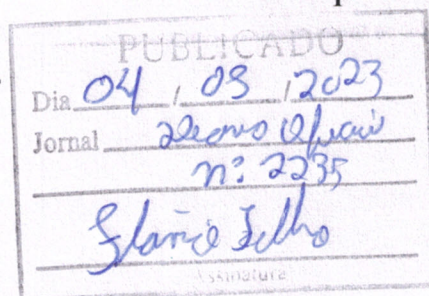 PUBLICADO
Dia 04 / 09 / 2023
Jornal Diário Oficial
nº 2235
Assinatura